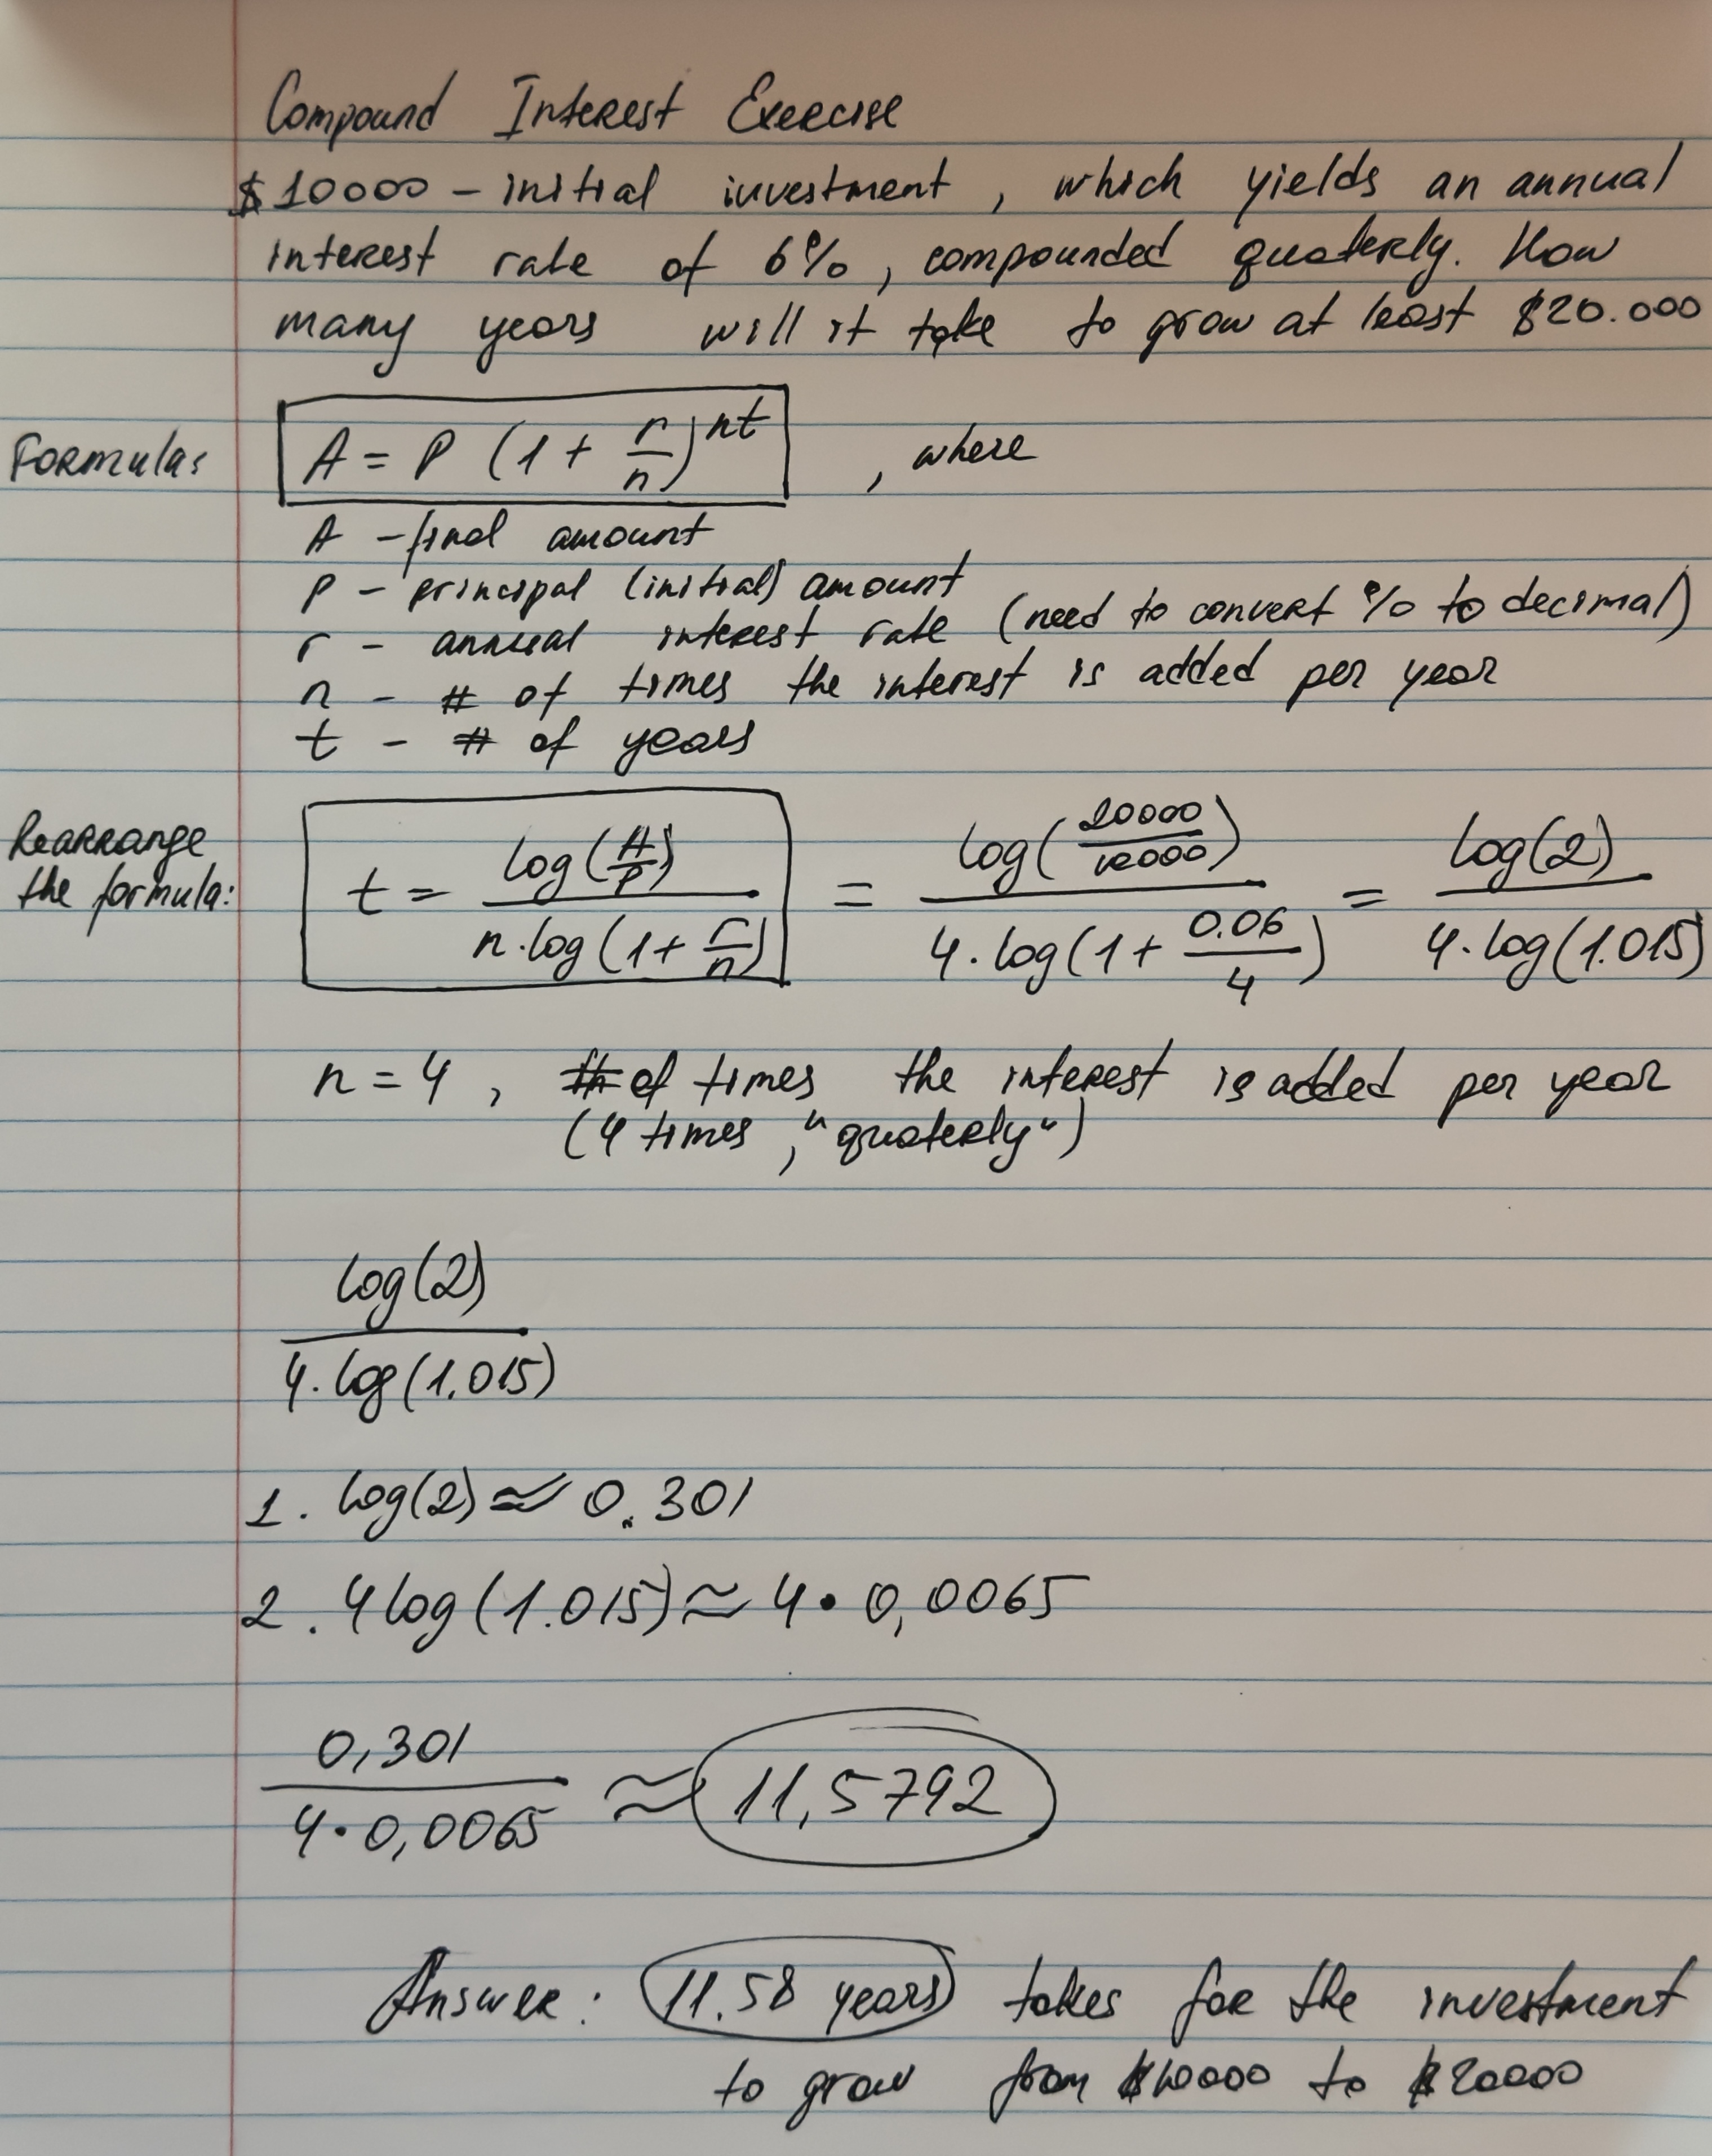 Compound Interest Exercise
$10000 - initial investment, which yields an annual
interest rate of 6%, compounded quoterly. How
many years will it take to grow at least $20.000
Formula: A = P (1 + r/n)^nt , where
A - final amount
P - principal (initial) amount
r - annual interest rate (need to convert % to decimal)
n - # of times the interest is added per year
t - # of years
Rearrange the formula: t = log(A/P) / n·log(1 + r/n) = log(20000/10000) / 4·log(1 + 0.06/4) = log(2) / 4·log(1.015)
n = 4, # of times the interest is added per year
(4 times, "quoterly")
log(2) / 4·log(1.015)
1. log(2) ≈ 0.301
2. 4log(1.015) ≈ 4·0,0065
0,301 / 4·0,0065 ≈ 11,5792
Answer: 11.58 years takes for the investment
to grow from $10000 to $20000